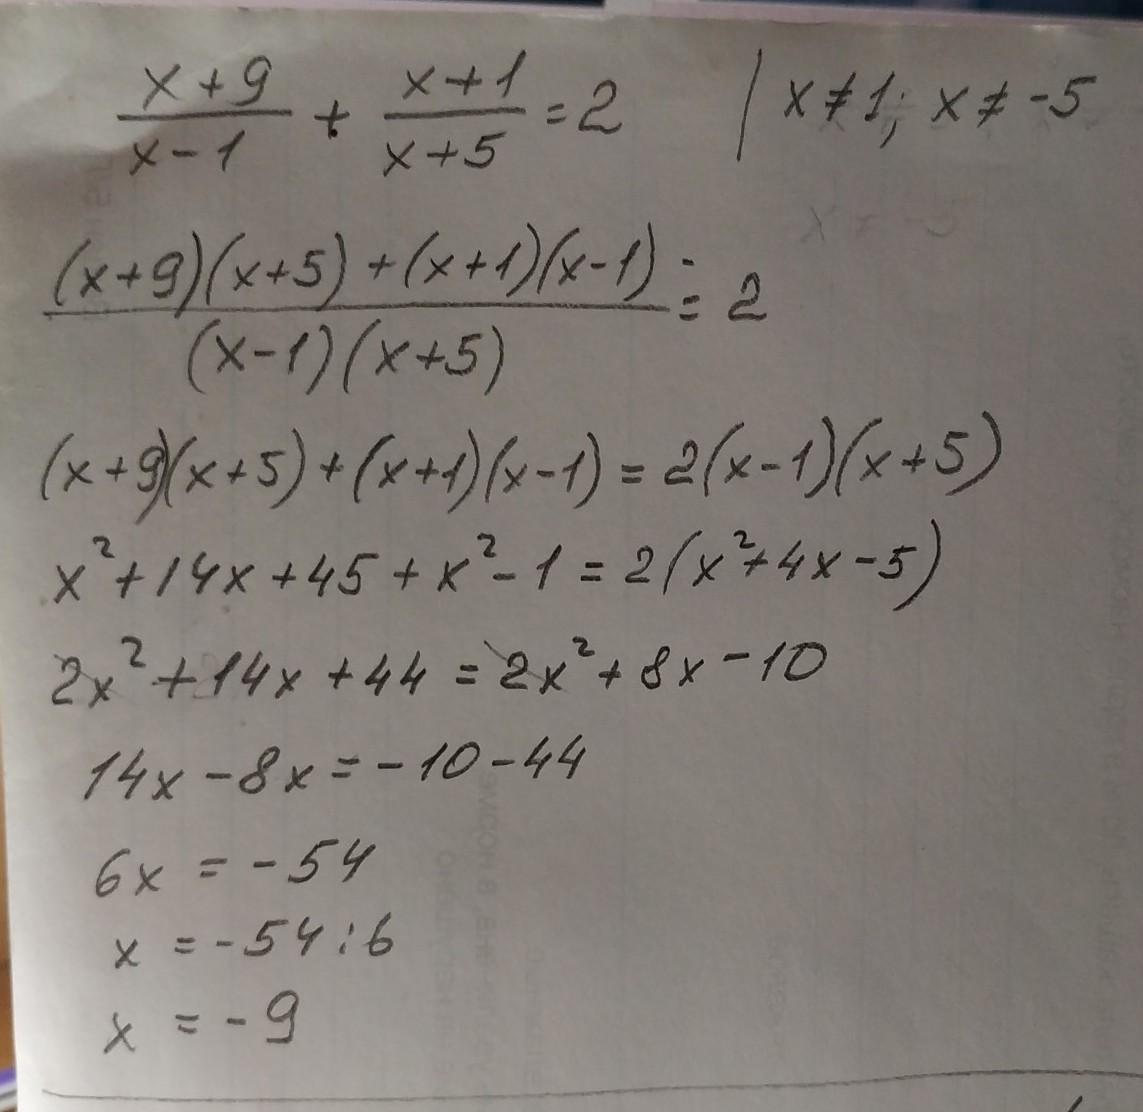 (x+9)/(x-1) + (x+1)/(x+5) = 2 | x≠1; x≠-5
((x+9)(x+5)+(x+1)(x-1))/((x-1)(x+5)) = 2
(x+9)(x+5)+(x+1)(x-1)=2(x-1)(x+5)
x²+14x+45+x²-1=2(x²+4x-5)
2x²+14x+44=2x²+8x-10
14x-8x=-10-44
6x=-54
x=-54:6
x=-9